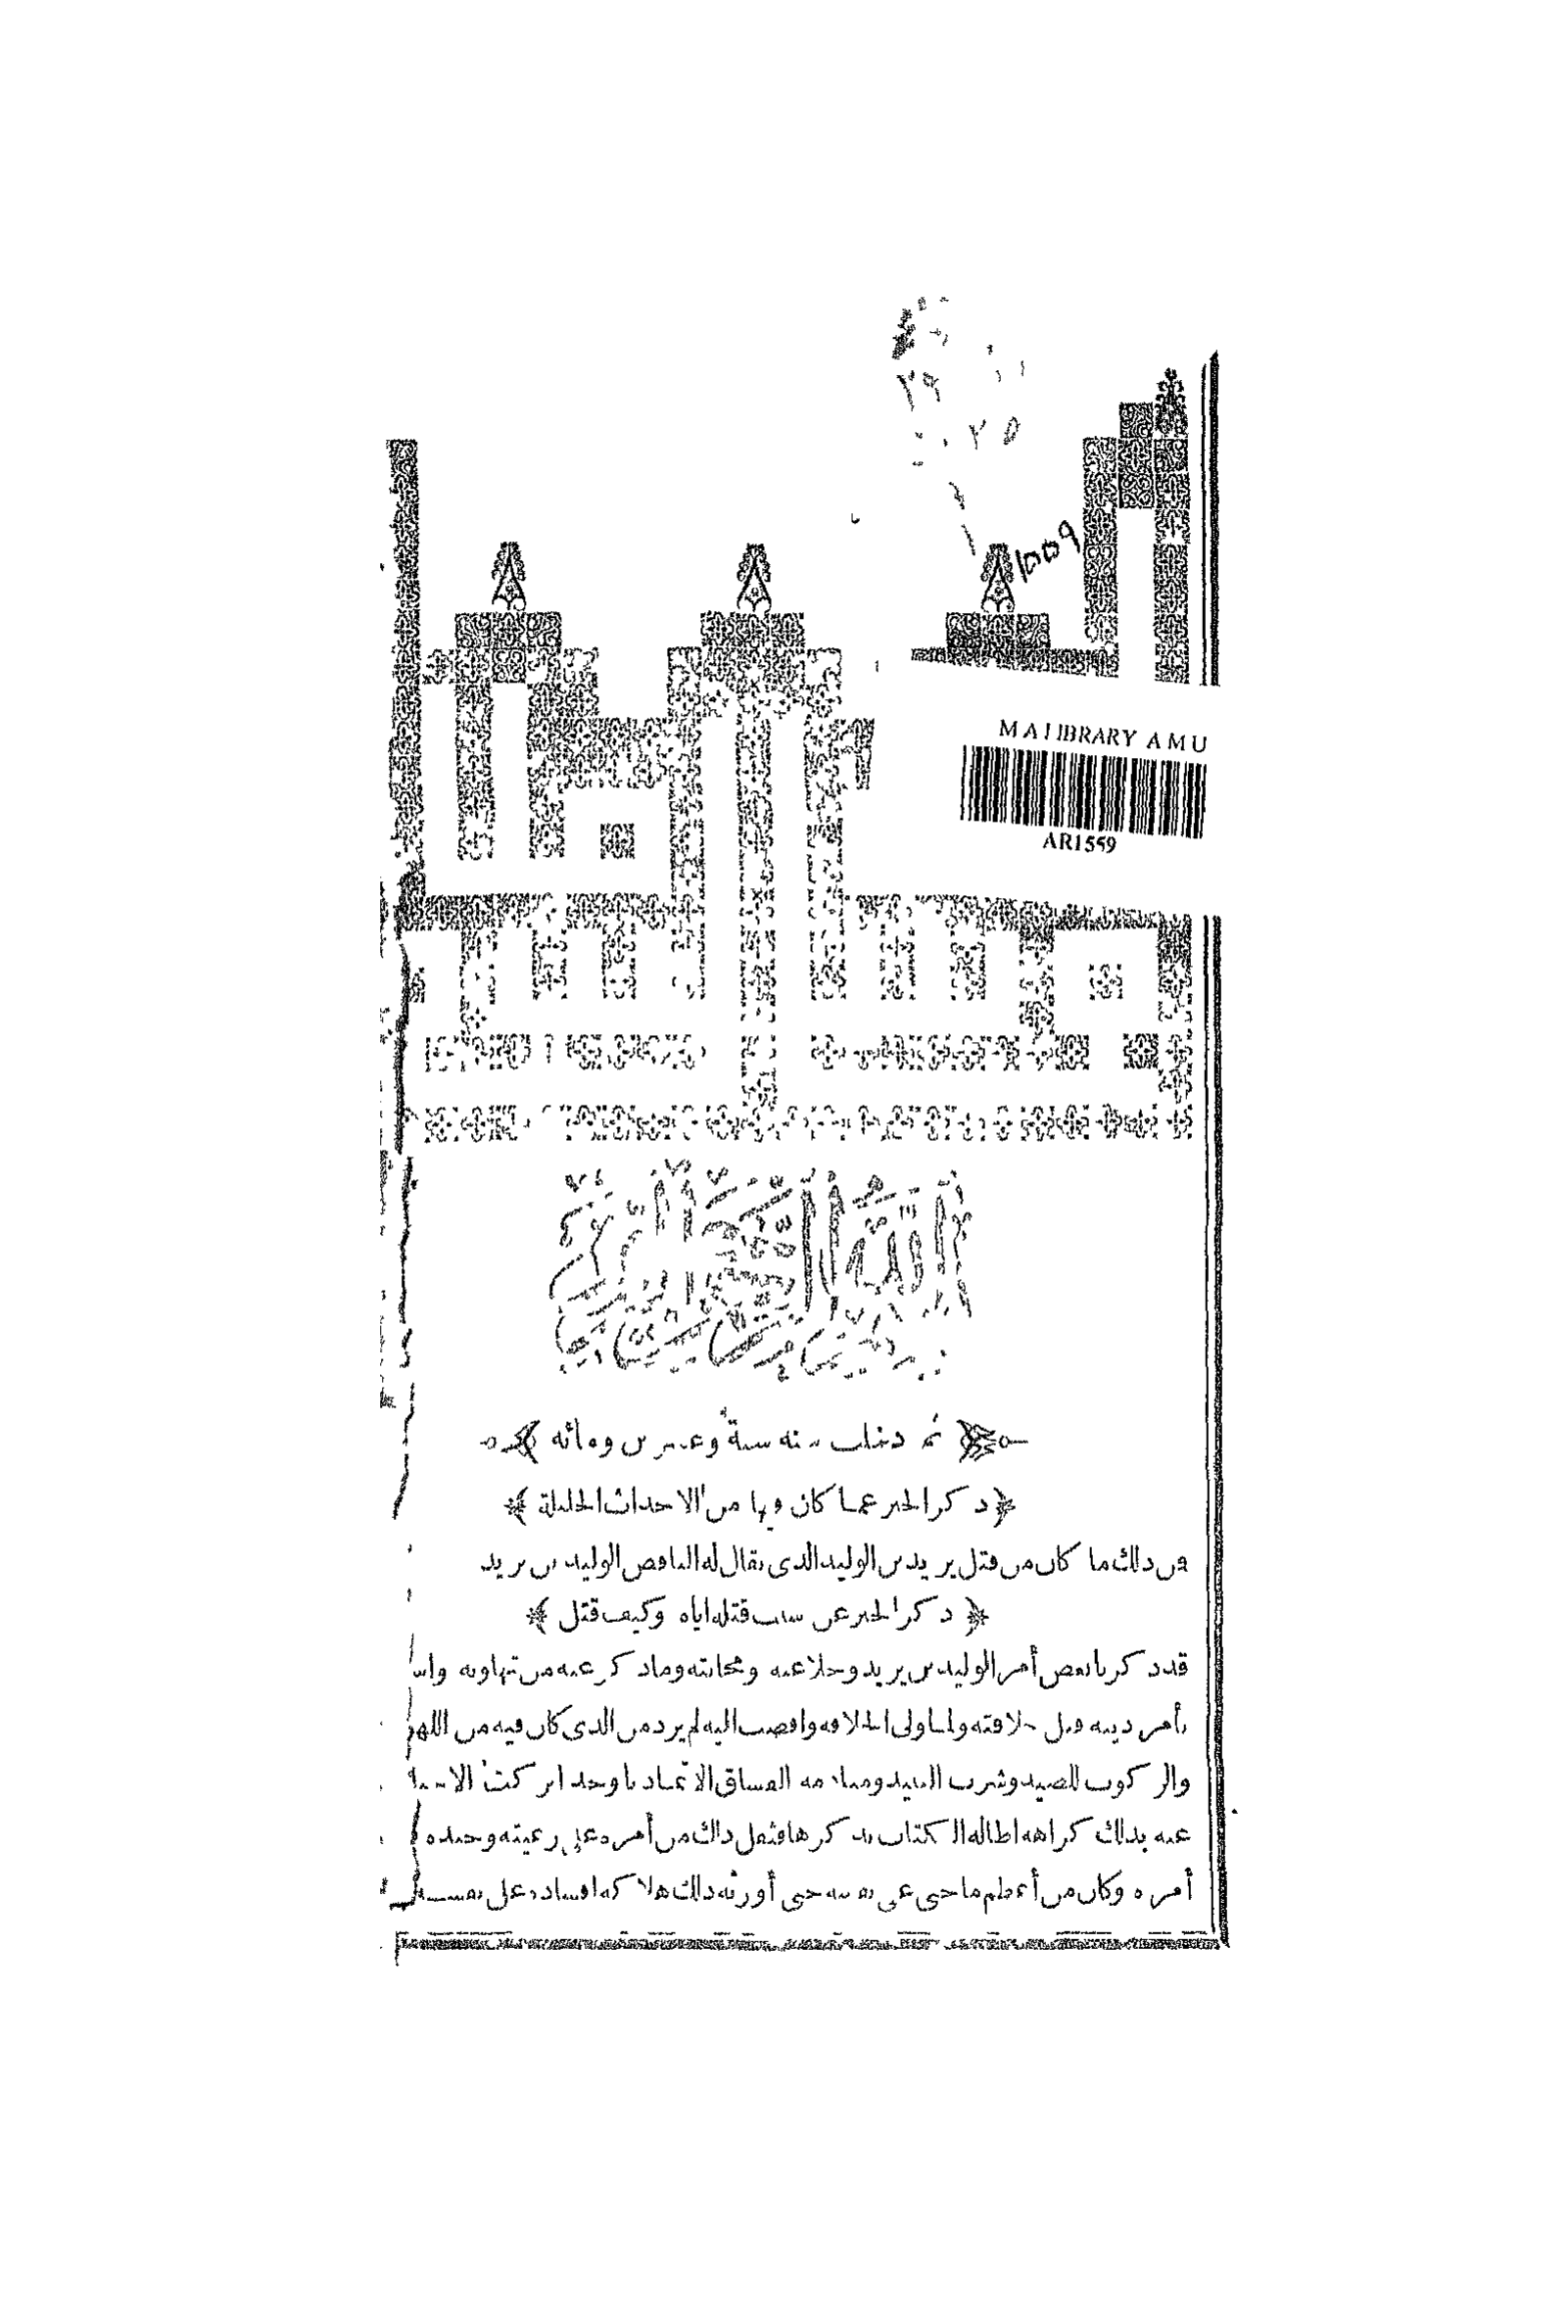 ٢٩
٢٥
١٥٥٩
M A LIBRARY A M U
AR1559
بسم الله الرحمن الرحيم
ثم دخلت سنة ستة وعشرين ومائة
ذكر الخبر عما كان فيها من الاحداث الجليلة
فمن ذلك ما كان من قتل يزيد بن الوليد الذي يقال له الناقص الوليد بن يزيد
ذكر الخبر عن سبب قتله اياه وكيف قتل
قد ذكرنا بعض أمر الوليد بن يزيد وخلاعته ومجانته وما ذكر عنه من تهاونه
بأمر دينه قبل خلافته ولما ولى الخلافة وافضت اليه لم يزدد من الذي كان فيه من اللهو
والركوب للصيد وشرب النبيذ ومنادمة الفساق الا تماديا وحدا تركت
عنه بذلك كراهة اطالة الكتاب بذكرها فثقل ذلك من أمره على رعيته وجنده
أمره وكان من أعظم ما جنى على نفسه حتى أورثه ذلك هلاكه افساده على نفسه